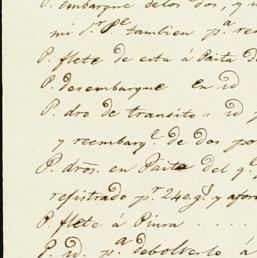 P. embarque delos dos, y
mi Sr. Pe. tambien pa. res
P. flete de esta á Paita d
P. desembarque en id
P. dro de tránsito à id p
y reembarqe. de dos por
P. dros. en Paita del q.
registrado pr. 240 qs. y afor
P. flete á Piura . . . .
P. id. pa. debolverlo á